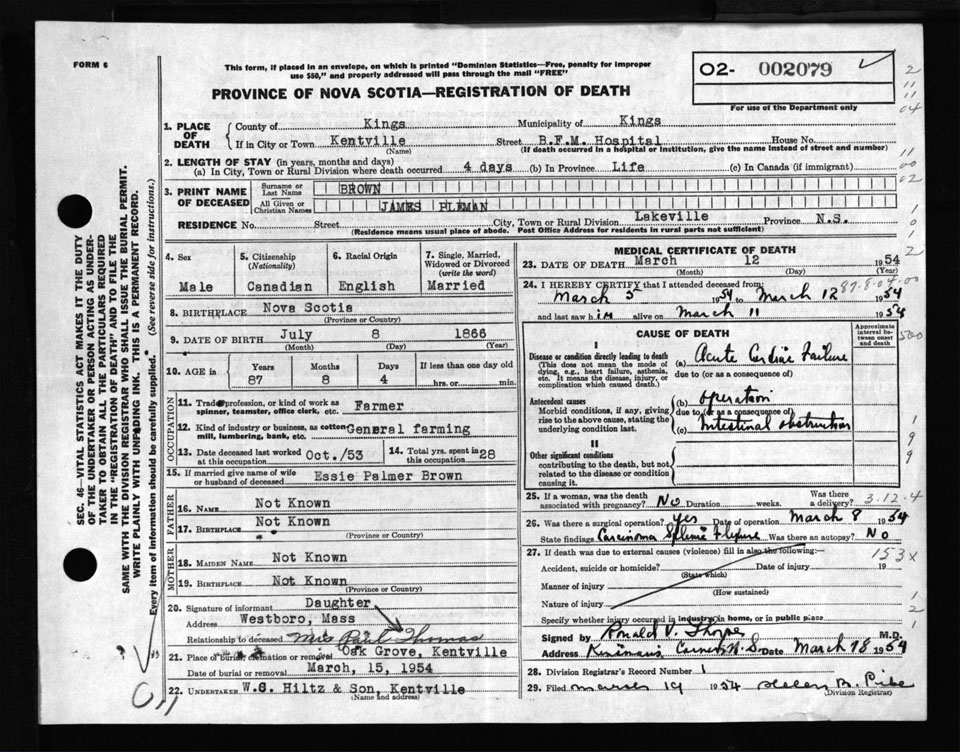 FORM 6
This form, if placed in an envelope, on which is printed "Dominion Statistics—Free, penalty for improper
use $50," and properly addressed will pass through the mail "FREE"
PROVINCE OF NOVA SCOTIA—REGISTRATION OF DEATH
O2- 002079
For use of the Department only
2
11
11
04
11
00
02
1
0
1
2
SEC. 46—VITAL STATISTICS ACT MAKES IT THE DUTY
OF THE UNDERTAKER OR PERSON ACTING AS UNDER-
TAKER TO OBTAIN ALL THE PARTICULARS REQUIRED
IN THE "REGISTRATION OF DEATH" AND TO FILE THE
SAME WITH THE DIVISION REGISTRAR WHO SHALL ISSUE THE BURIAL PERMIT.
WRITE PLAINLY WITH UNFADING INK. THIS IS A PERMANENT RECORD.
Every item of information should be carefully supplied. (See reverse side for instructions.)
1. PLACE OF DEATH
County of Kings Municipality of Kings
If in City or Town Kentville Street B.F.M. Hospital House No.
(Name) (If death occurred in a hospital or institution, give the name instead of street and number)
2. LENGTH OF STAY (in years, months and days)
(a) In City, Town or Rural Division where death occurred 4 days (b) In Province Life (c) In Canada (if immigrant)
3. PRINT NAME OF DECEASED
Surname or Last Name BROWN
All Given or Christian Names JAMES PLEMAN
RESIDENCE No. Street City, Town or Rural Division Lakeville Province N.S.
(Residence means usual place of abode. Post Office Address for residents in rural parts not sufficient)
4. Sex Male
5. Citizenship (Nationality) Canadian
6. Racial Origin English
7. Single, Married, Widowed or Divorced (write the word) Married
8. BIRTHPLACE Nova Scotia
(Province or Country)
9. DATE OF BIRTH July 8 1866
(Month) (Day) (Year)
10. AGE in Years Months Days If less than one day old
87 8 4 hrs. or min.
OCCUPATION
11. Trade, profession, or kind of work as spinner, teamster, office clerk, etc. Farmer
12. Kind of industry or business, as cotton mill, lumbering, bank, etc. General farming
13. Date deceased last worked at this occupation Oct./53
14. Total yrs. spent in this occupation 28
15. If married give name of wife or husband of deceased Essie Palmer Brown
FATHER
16. NAME Not Known
17. BIRTHPLACE Not Known
(Province or Country)
MOTHER
18. MAIDEN NAME Not Known
19. BIRTHPLACE Not Known
(Province or Country)
20. Signature of informant Daughter
Address Westboro, Mass
Relationship to deceased Mrs Paul Thomas
21. Place of burial, cremation or removal Oak Grove, Kentville
Date of burial or removal March, 15, 1954
22. UNDERTAKER W.S. Hiltz & Son, Kentville
(Name and address)
MEDICAL CERTIFICATE OF DEATH
23. DATE OF DEATH March 12 1954
(Month) (Day) (Year)
24. I HEREBY CERTIFY that I attended deceased from:
87-8-04-00
March 5 1954 to March 12 1954
and last saw him alive on March 11 1954
CAUSE OF DEATH
Approximate interval between onset and death
500
I
Disease or condition directly leading to death
(This does not mean the mode of dying, e.g., heart failure, asthenia, etc. It means the disease, injury, or complication which caused death.)
(a) Acute Cardiac Failure
due to (or as a consequence of)
Antecedent causes
Morbid conditions, if any, giving rise to the above cause, stating the underlying condition last.
(b) operation
due to (or as a consequence of)
(c) Intestinal obstruction
II
Other significant conditions
contributing to the death, but not related to the disease or condition causing it.
1
9
9
25. If a woman, was the death associated with pregnancy? No Duration weeks. Was there a delivery?
3.12.4
26. Was there a surgical operation? yes Date of operation March 8 1954
State findings Carcinoma Splenic Flexure Was there an autopsy? No
27. If death was due to external causes (violence) fill in also the following:—
153X
Accident, suicide or homicide? Date of injury 19
(State which)
Manner of injury
(How sustained)
Nature of injury
1
2
Specify whether injury occurred in industry, in home, or in public place
Signed by Ronald V. Thorpe M.D.
Address N.S. Date March 18 1954
28. Division Registrar's Record Number 1
29. Filed March 19 1954 Helen B.
Division Registrar